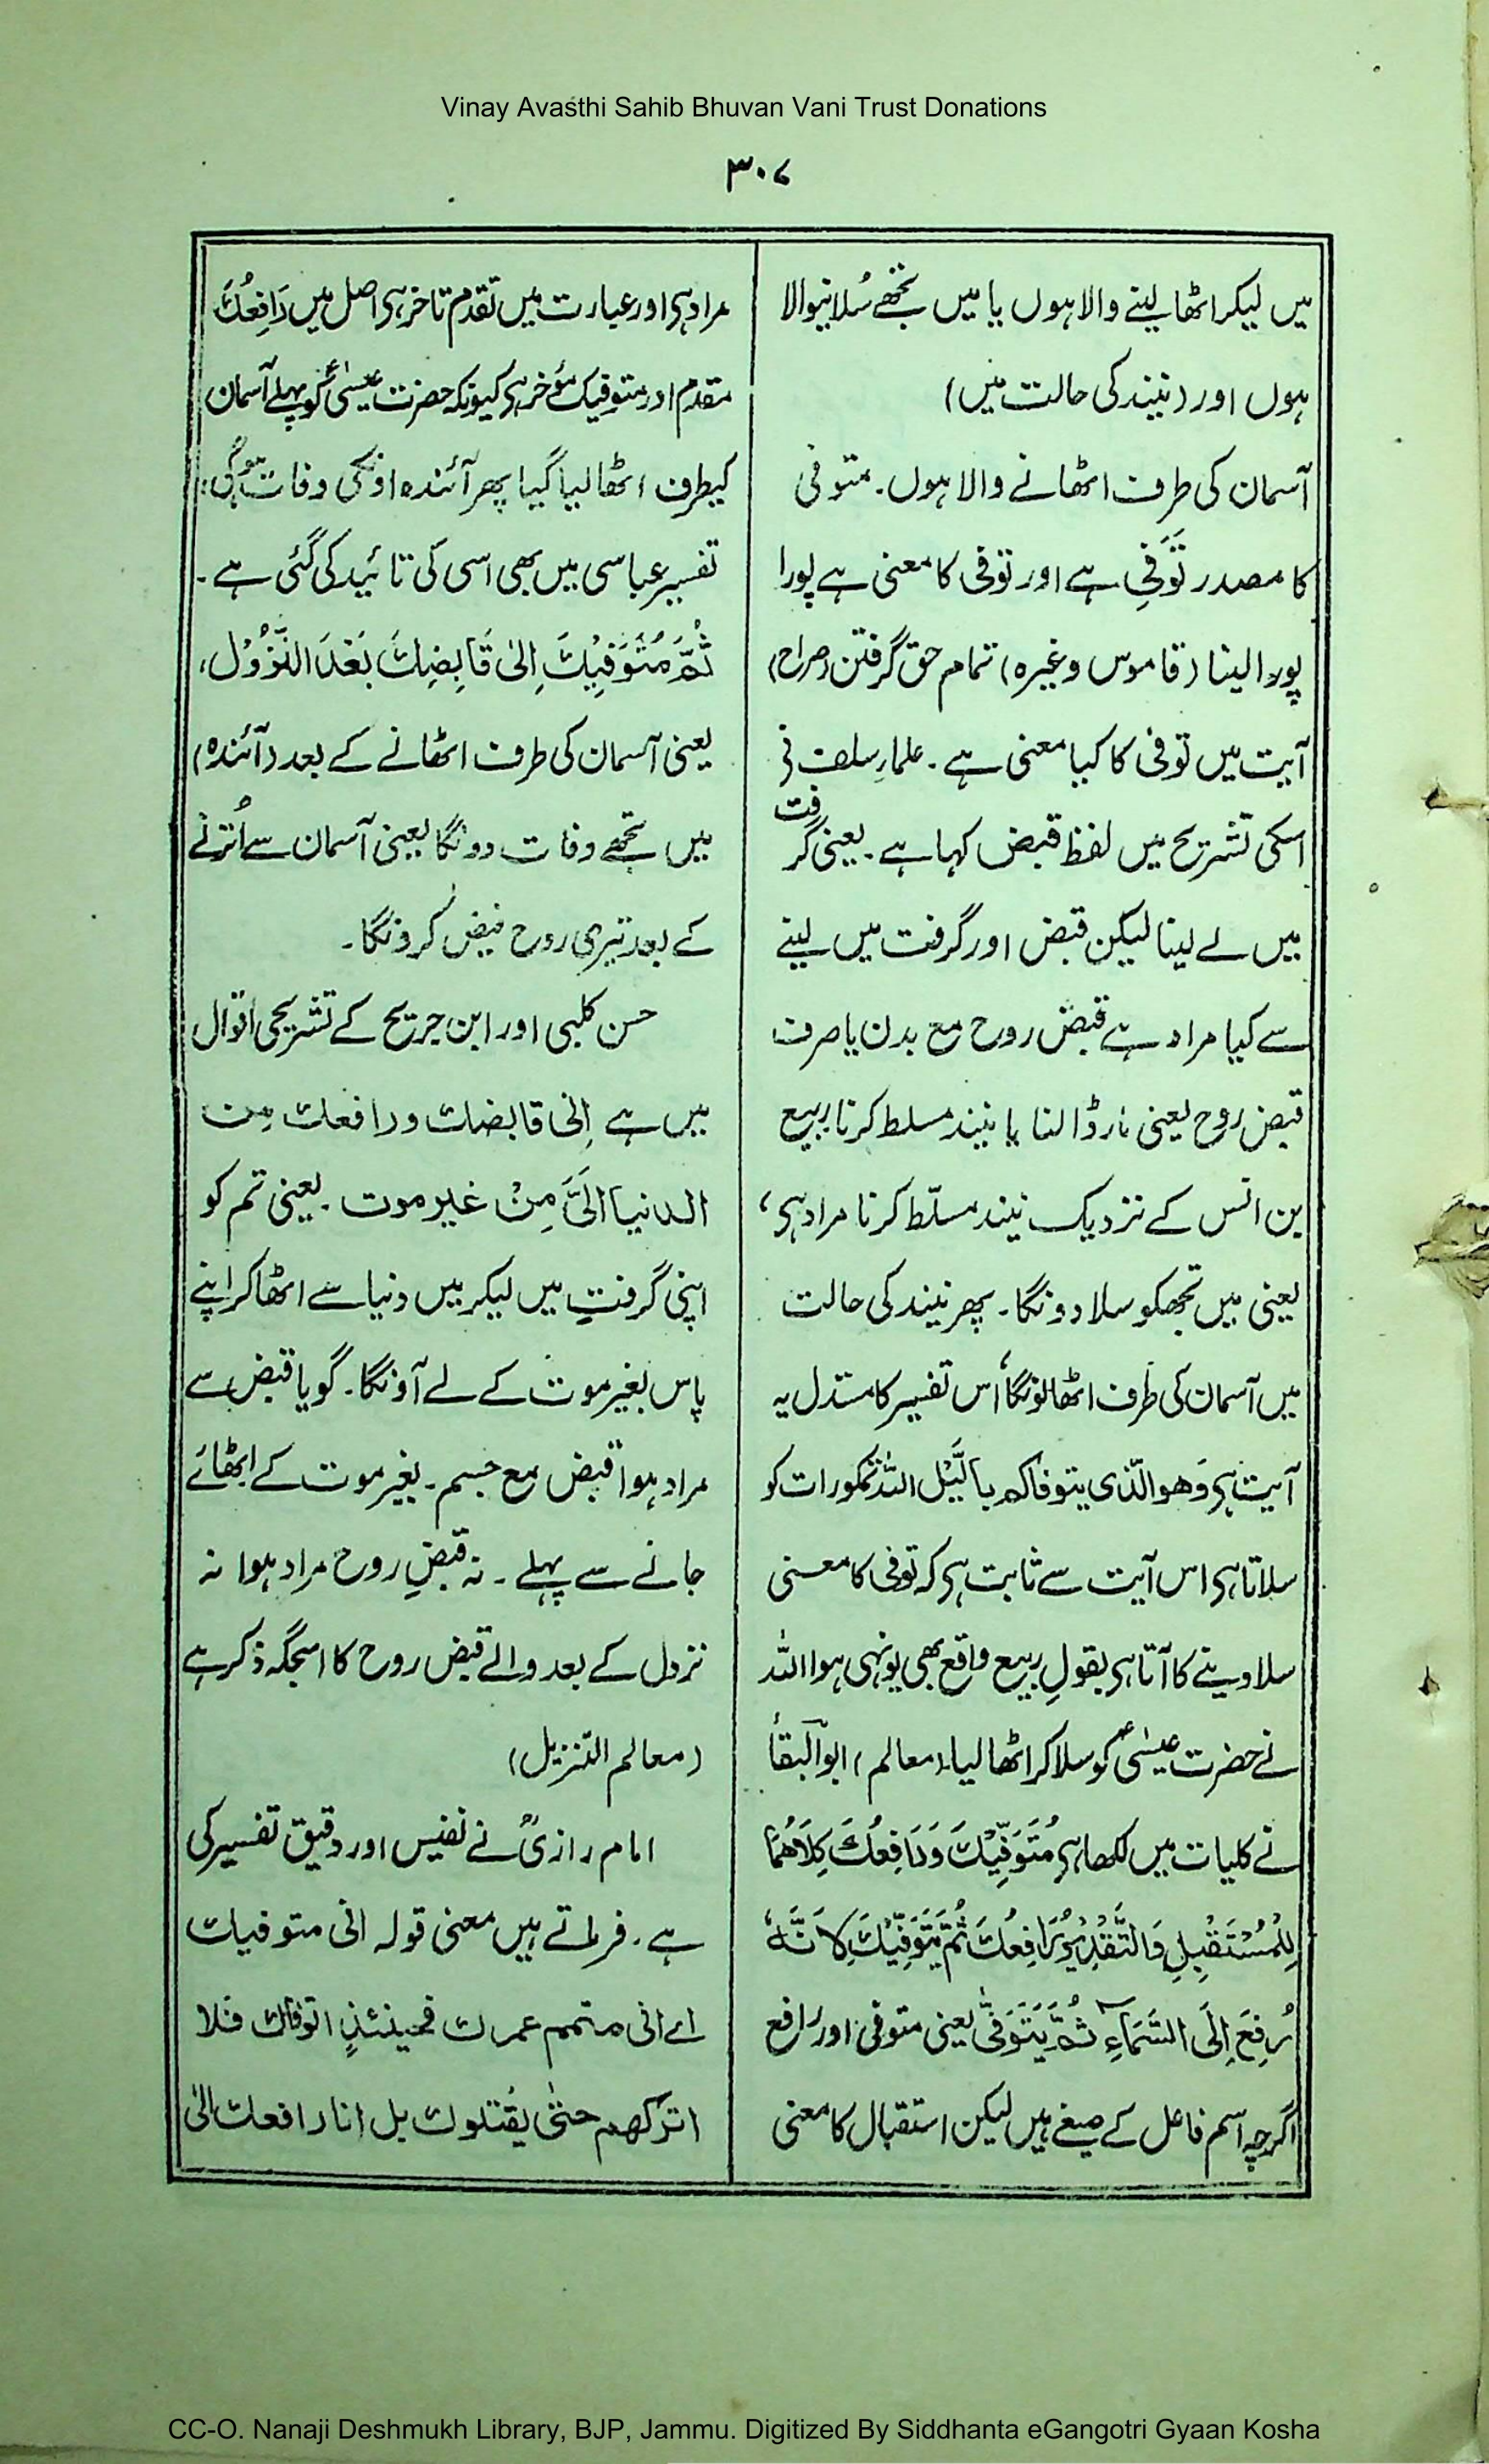 Vinay Avasthi Sahib Bhuvan Vani Trust Donations
۳۰۷
میں لیکر اٹھا لینے والا ہوں یا میں تجھے سُلانیوالا
ہوں اور (نیند کی حالت میں)
آسمان کی طرف اٹھانے والا ہوں۔ متوفی
کا مصدر تَوَفِّی ہے اور توفی کا معنی ہے پورا
پورا لینا (قاموس وغیرہ) تمام حق گرفتن (صراح)
آیت میں توفی کا کیا معنی ہے۔ علمارِ سلف نے
اسکی تشریح میں لفظ قبض کہا ہے۔ یعنی گرفت
میں لے لینا لیکن قبض اور گرفت میں لینے
سے کیا مراد ہے قبض روح مع بدن یا صرف
قبض روح یعنی مارڈالنا یا نیند مسلط کرنا ربیع
بن انس کے نزدیک نیند مسلّط کرنا مراد ہی،
یعنی میں تجھکو سلادونگا۔ پھر نیند کی حالت
میں آسمان کی طرف اٹھالونگا اس تفسیر کا مستدل یہ
آیت ہی وَھوالّذی یتوفاکم باللَّیْل اللہ تمکو رات کو
سلاتا ہی اس آیت سے ثابت ہی کہ توفی کا معنی
سلادینے کا آتا ہی بقولِ ربیع واقع بھی یونہی ہوا اللہ
نے حضرت عیسٰیؑ کو سلا کر اٹھا لیا (معالم) ابوالبقاؒ
نے کلیات میں لکھا ہی مُتَوَفِّیْكَ وَرَافِعُكَ کِلَاھُمَا
لِلْمُسْتَقْبِلِ وَالتَّقْدِیْرُ رَافِعُكَ ثُمَّ یَتَوَفِّیْكَ لِاَنَّہٗ
رُفِعَ اِلَی السَّمَاءِ ثُمَّ یَتَوَفّٰی یعنی متوفی اور رافع
اگرچہ اسم فاعل کے صیغے ہیں لیکن استقبال کا معنی
مراد ہی اور عبارت میں تقدم تاخر ہی اصل میں رَافِعُكَ
مقدم اور متوفیک مؤخر ہی کیونکہ حضرت عیسٰیؑ کو پہلے آسمان
کیطرف اٹھا لیا گیا پھر آئندہ اونکی وفات ہوگی:
تفسیر عباسی میں بھی اسی کی تائید کی گئی ہے۔
ثُمَّ مُتَوَفِّیْكَ اِلٰی قَابِضِكَ بَعْدَ النُّزُوْلِ،
یعنی آسمان کی طرف اٹھانے کے بعد (آئندہ)
میں تجھے وفات دونگا یعنی آسمان سے اُترنے
کے بعد تیری روح قبض کرونگا۔
حسن کلبی اور ابن جریح کے تشریحی اقوال
میں ہے اِنی قابضك ورافعك مِن
الدنیا اِلَیَّ مِنْ غیر موت۔ یعنی تم کو
اپنی گرفت میں لیکر میں دنیا سے اٹھا کر اپنے
پاس بغیر موت کے لے آؤنگا۔ گویا قبض سے
مراد ہوا قبض مع جسم۔ بغیر موت کے اٹھائے
جانے سے پہلے۔ نہ قبضِ روح مراد ہوا نہ
نزول کے بعد والے قبض روح کا اسجگہ ذکر ہے
(معالم التنزیل)
امام رازیؒ نے نفیس اور دقیق تفسیر کی
ہے۔ فرماتے ہیں معنی قولہ انی متوفیك
اے انی متمم عمرك فحینئذٍ اتوفاك فلا
اترکھم حتّٰی یقتلوك بل انا رافعك الیٰ
CC-O. Nanaji Deshmukh Library, BJP, Jammu. Digitized By Siddhanta eGangotri Gyaan Kosha